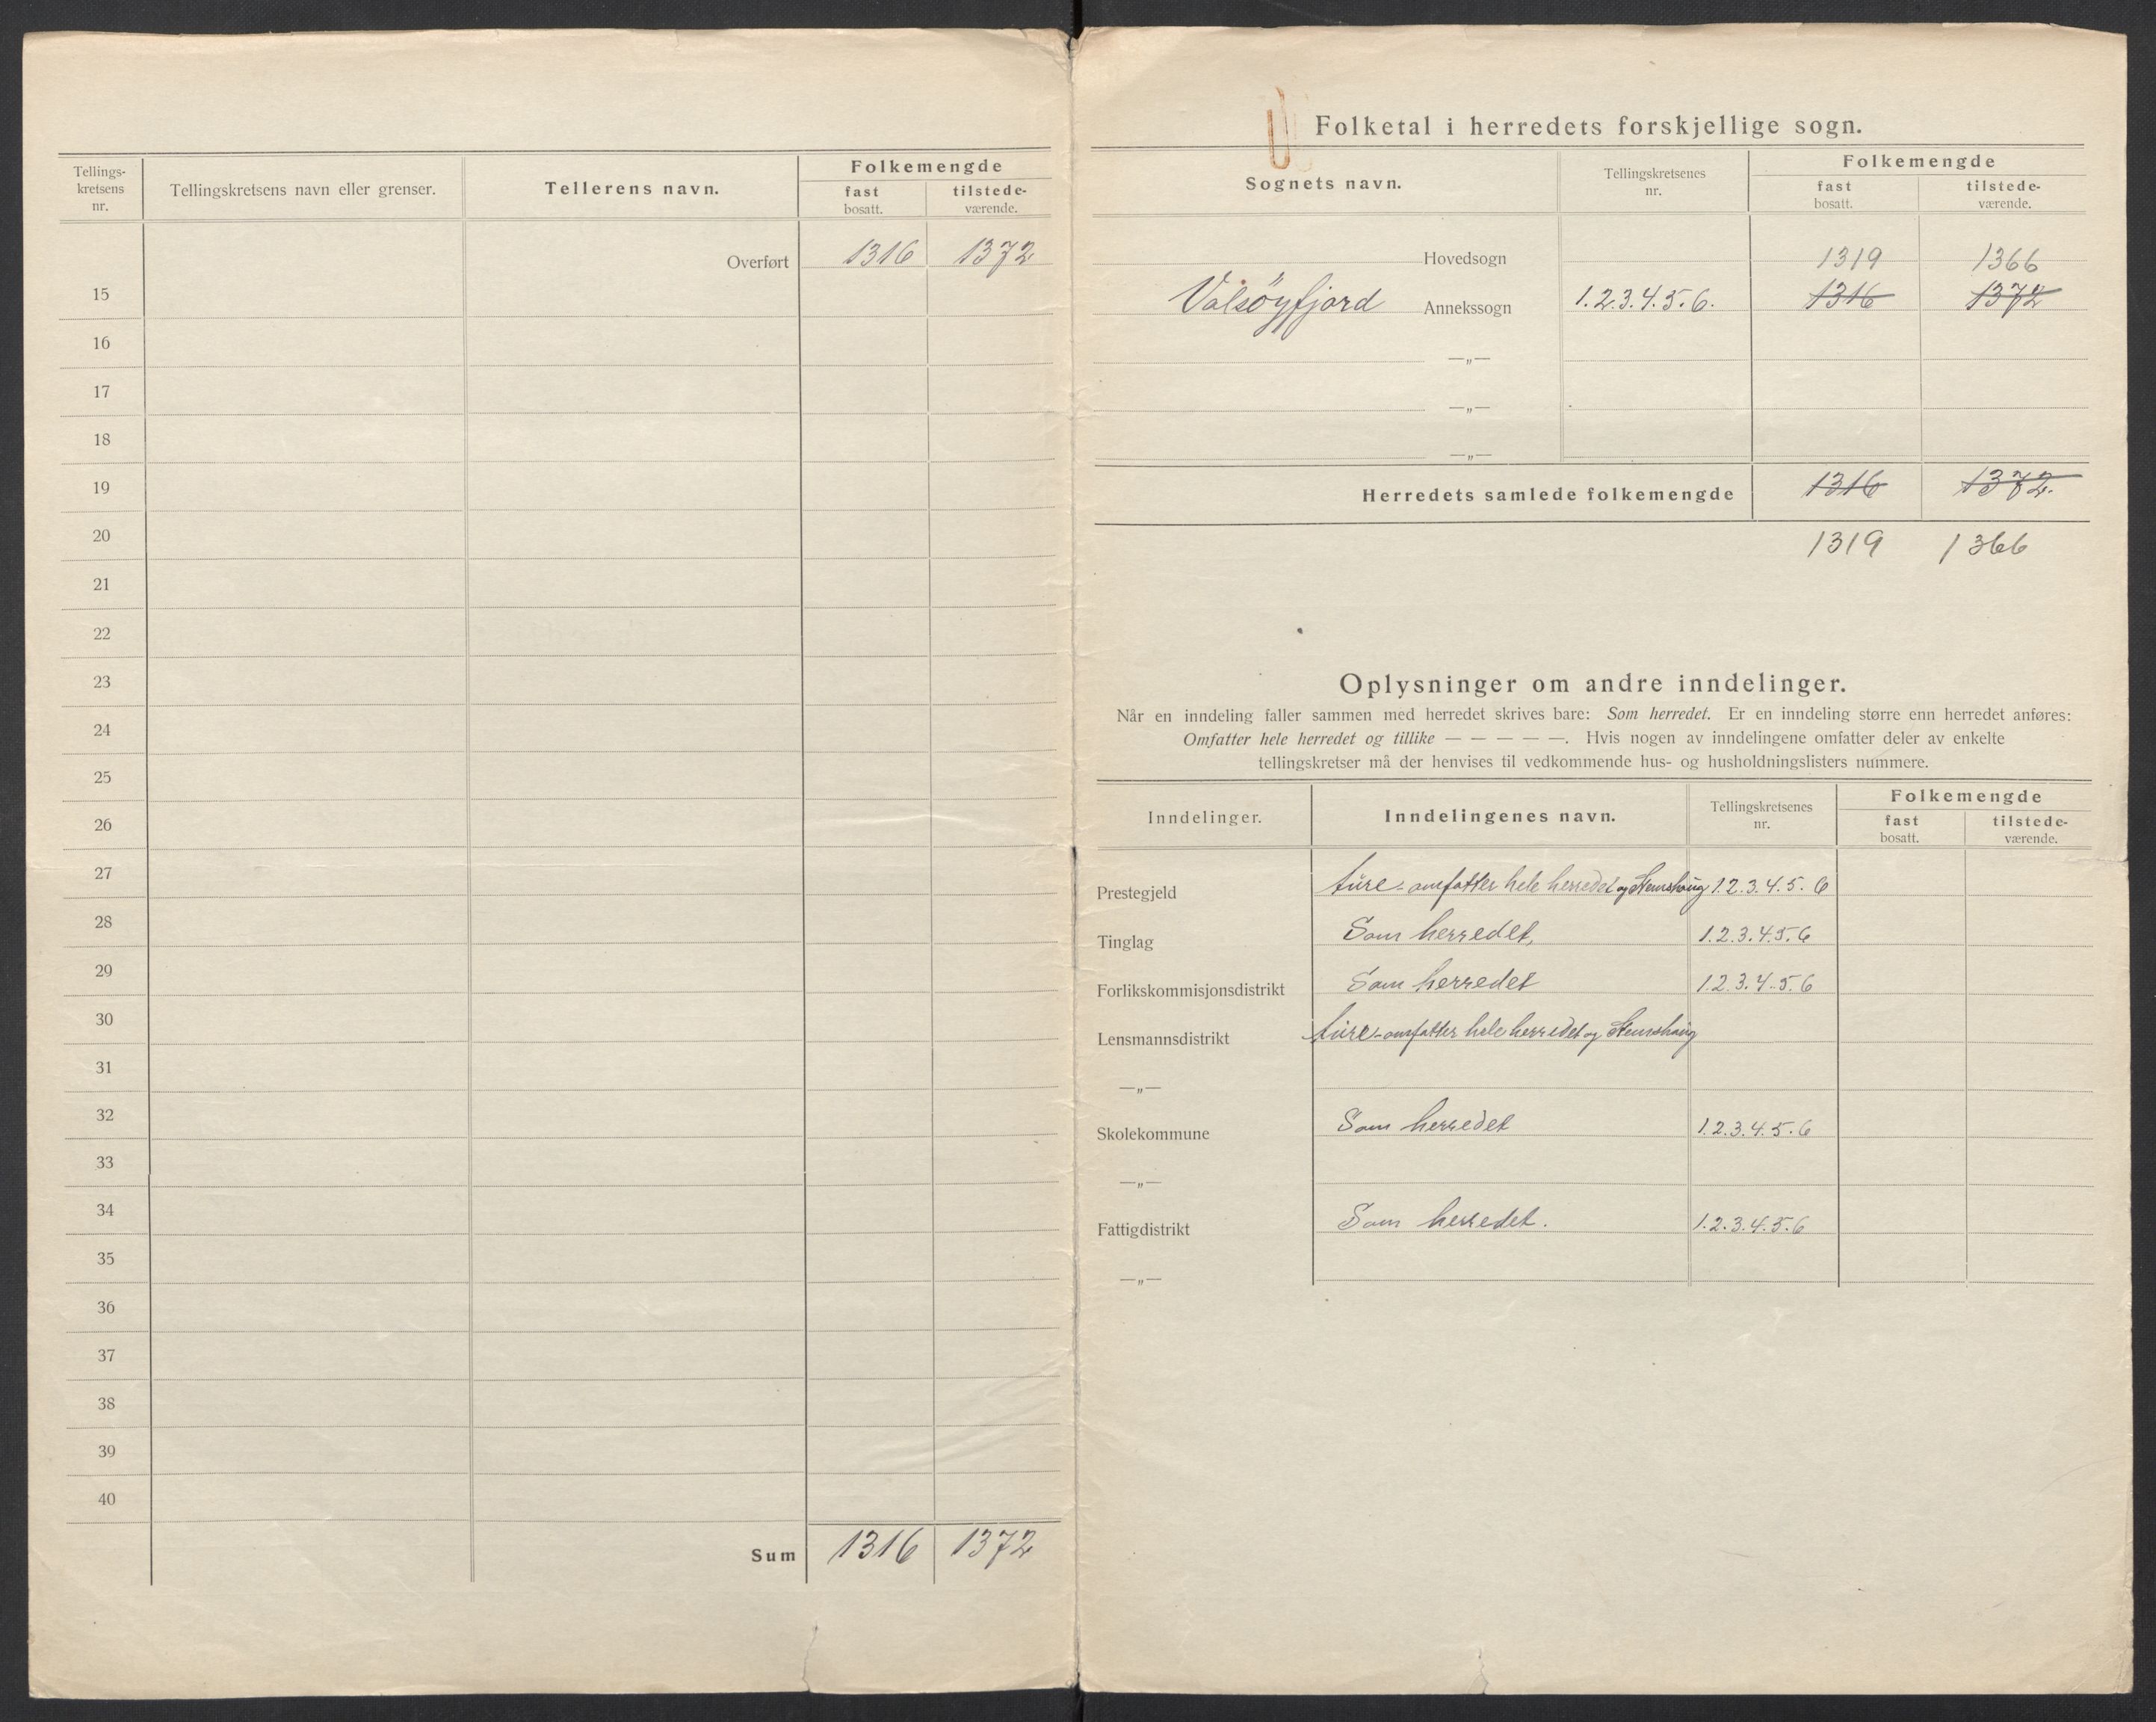 Tellings-
kretsens
nr.
Tellingskretsens navn eller grenser.
Tellerens navn.
Folkemengde
fast
bosatt.
tilstede-
værende.
Overført 1316 1372
15
16
17
18
19
20
21
22
23
24
25
26
27
28
29
30
31
32
33
34
35
36
37
38
39
40
Sum 1316 1372
Folketal i herredets forskjellige sogn.
Sognets navn.
Tellingskretsenes
nr.
Folkemengde
fast
bosatt.
tilstede-
værende.
Hovedsogn 1319 1366
Valsöyfjord Annekssogn 1.2.3.4.5.6. 1316 1372
—„—
—„—
—„—
Herredets samlede folkemengde 1316 1372.
1319 1366
Oplysninger om andre inndelinger.
Når en inndeling faller sammen med herredet skrives bare: Som herredet. Er en inndeling større enn herredet anføres:
Omfatter hele herredet og tillike — — — — —. Hvis nogen av inndelingene omfatter deler av enkelte
tellingskretser må der henvises til vedkommende hus- og husholdningslisters nummere.
Inndelinger.
Inndelingenes navn.
Tellingskretsenes
nr.
Folkemengde
fast
bosatt.
tilstede-
værende.
Prestegjeld Aure - omfatter hele herredet og Stemshaug 1.2.3.4.5.6
Tinglag Som herredet, 1.2.3.4.5.6
Forlikskommisjonsdistrikt Som herredet 1.2.3.4.5.6
Lensmannsdistrikt Aure - omfatter hele herredet og Stemshaug
—„—
Skolekommune Som herredet 1.2.3.4.5.6
—„—
Fattigdistrikt Som herredet. 1.2.3.4.5.6
—„—